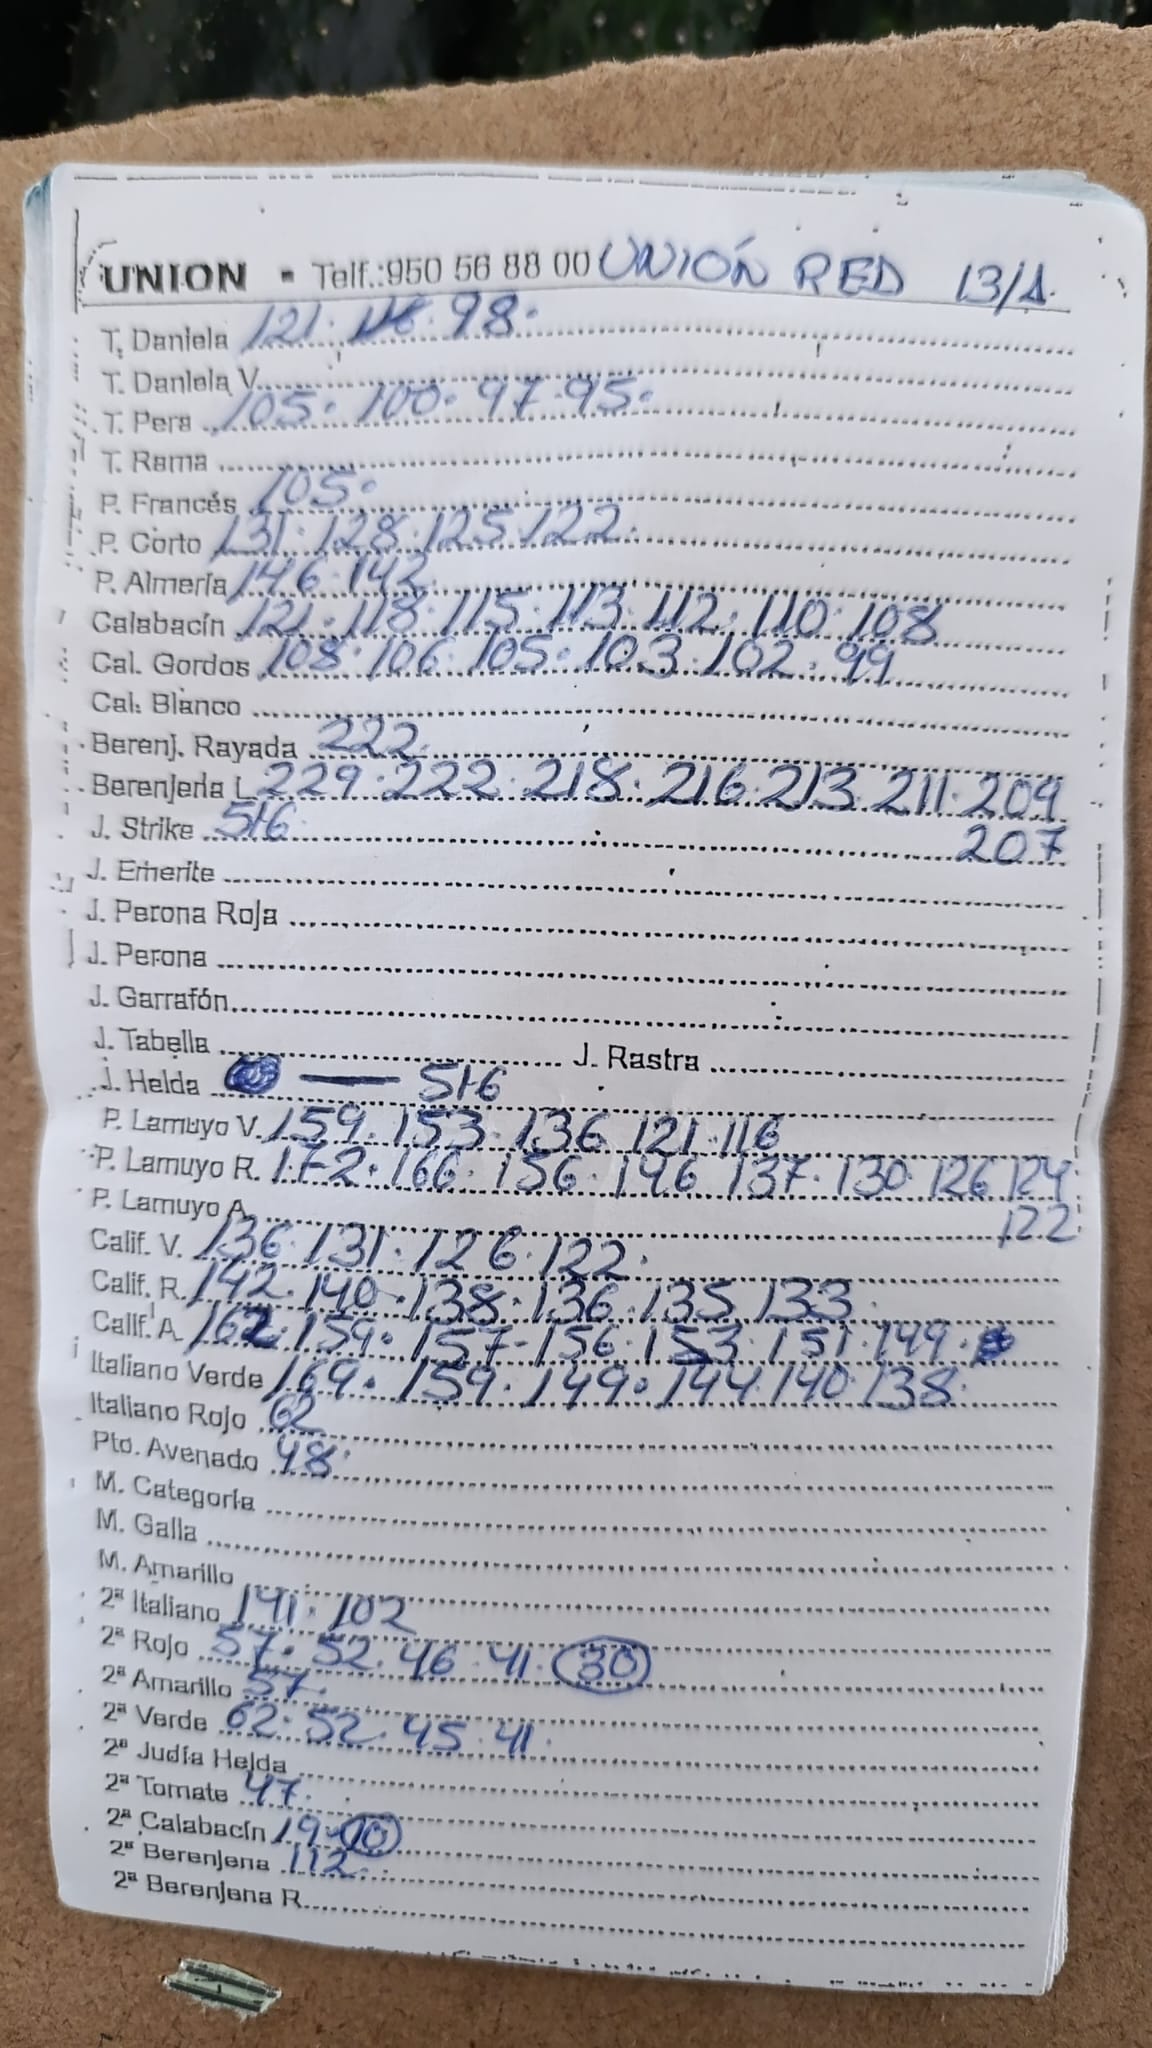 UNION - Telf.:950 56 88 00 UNIÓN RED 13/1.
T. Daniela 121. 116. 98.
T. Daniela V.
T. Pera 105. 100. 97. 95.
T. Rama
P. Francés 105.
P. Corto 131. 128. 125. 122.
P. Almería 146. 142.
Calabacín 121. 118. 115. 113. 112. 110. 108
Cal. Gordos 108. 106. 105. 103. 102. 99
Cal. Blanco
Berenj. Rayada 222.
Berenjena L. 229. 222. 218. 216. 213. 211. 209
207
J. Strike 516
J. Emerite
J. Perona Roja
J. Perona
J. Garrafón
J. Tabella J. Rastra
J. Helda — 516
P. Lamuyo V. 159. 153. 136 121. 116
P. Lamuyo R. 172. 166. 156. 146 137. 130. 126 124
122
P. Lamuyo A.
Calif. V. 136. 131. 126. 122.
Calif. R. 142. 140. 138. 136. 135 133.
Calif. A. 162. 159. 157- 156. 153. 151. 149.
Italiano Verde 169. 159. 149. 144. 140 138.
Italiano Rojo 62
Pto. Avenado 48.
M. Categoría
M. Galla
M. Amarillo
2ª Italiano 141. 102
2ª Rojo 57. 52. 46. 41. 30
2ª Amarillo 57.
2ª Verde 62. 52. 45. 41.
2ª Judía Helda
2ª Tomate 47.
2ª Calabacín 19. 10
2ª Berenjena 112.
2ª Berenjena R.